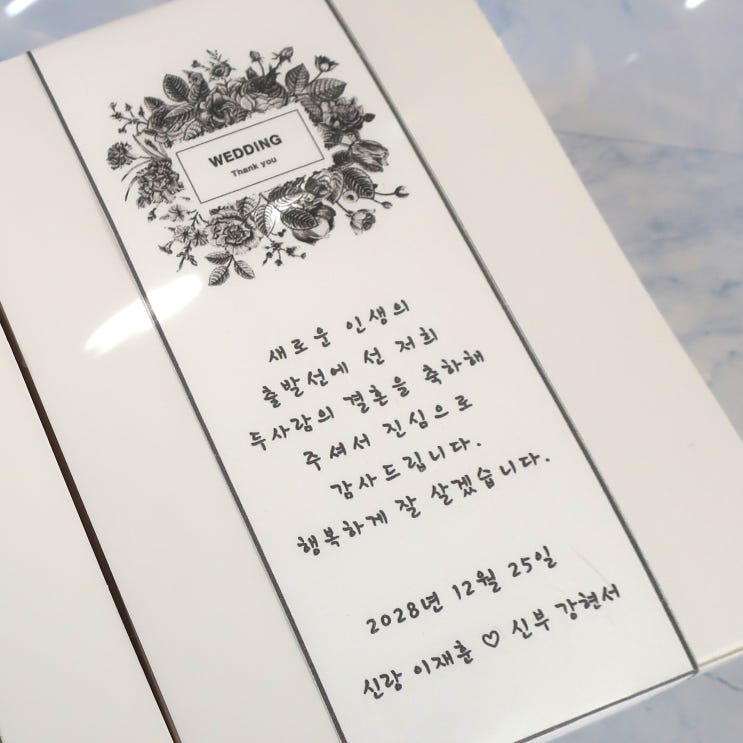 WEDDING
Thank you
새로운 인생의
출발선에 선 저희
두사람의 결혼을 축하해
주셔서 진심으로
감사드립니다.
행복하게 잘 살겠습니다.
2028년 12월 25일
신랑 이재훈 ♡ 신부 강현서